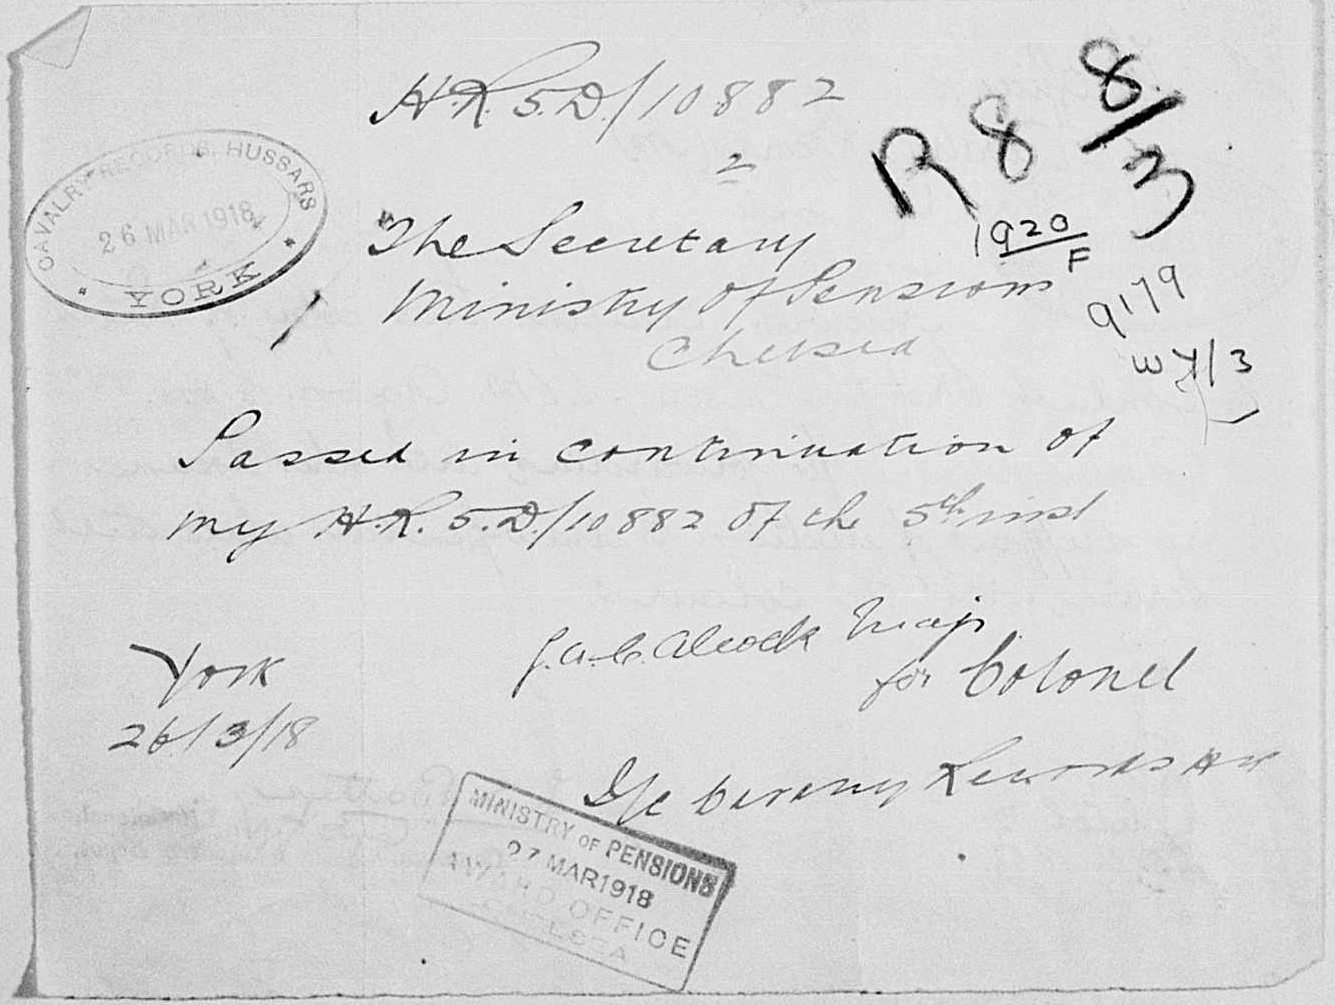 H.R. 5.D/10882
2
R8 8/3
1920
F
CAVALRY RECORDS, HUSSARS
26 MAR 1918
YORK
"The Secretary
Ministry of Pensions
Chelsea
9179
Passed in continuation of
my H.R. 5.D/10882 of the 5th inst
J.A.C. Alcock Maj
for Colonel
York
26/3/18
I/c Cavalry Records
MINISTRY OF PENSIONS
27 MAR 1918
AWARD OFFICE
CHELSEA